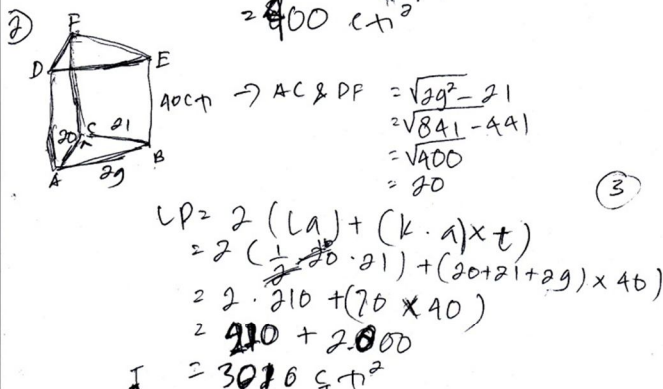 = 400 cm²
2)
F
D E
40cm
20 C 21
A 29 B
→ AC & DF = √29² - 21
= √841 - 441
= √400
= 20
3
LP = 2 (La) + (k . a) x t)
= 2 (1/2 . 20 . 21) + (20+21+29) x 40)
= 2 . 210 + (70 x 40)
= 210 + 2800
= 3010 cm²